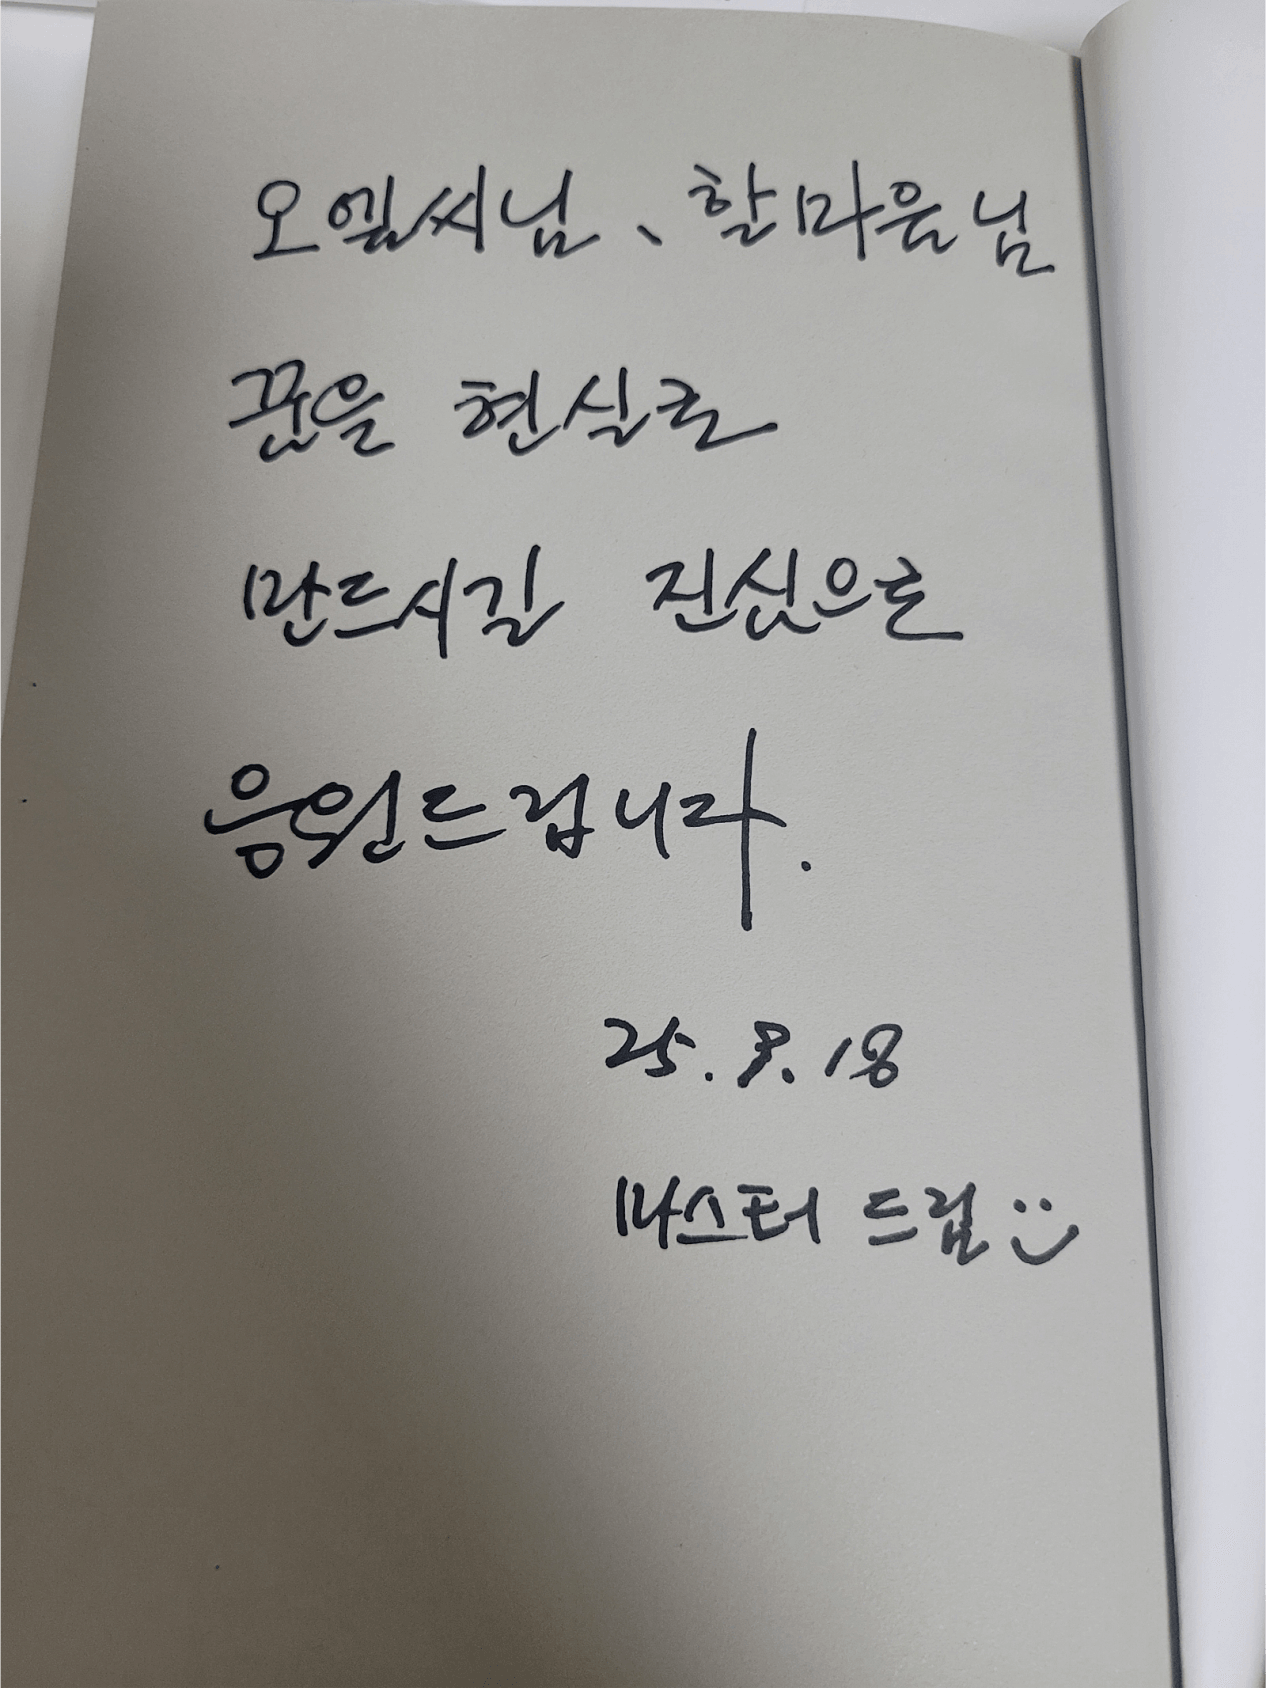 오엘씨님、한마음님
꿈을 현실로
만드시길 진심으로
응원드립니다.
25. 9. 18
마스터 드림